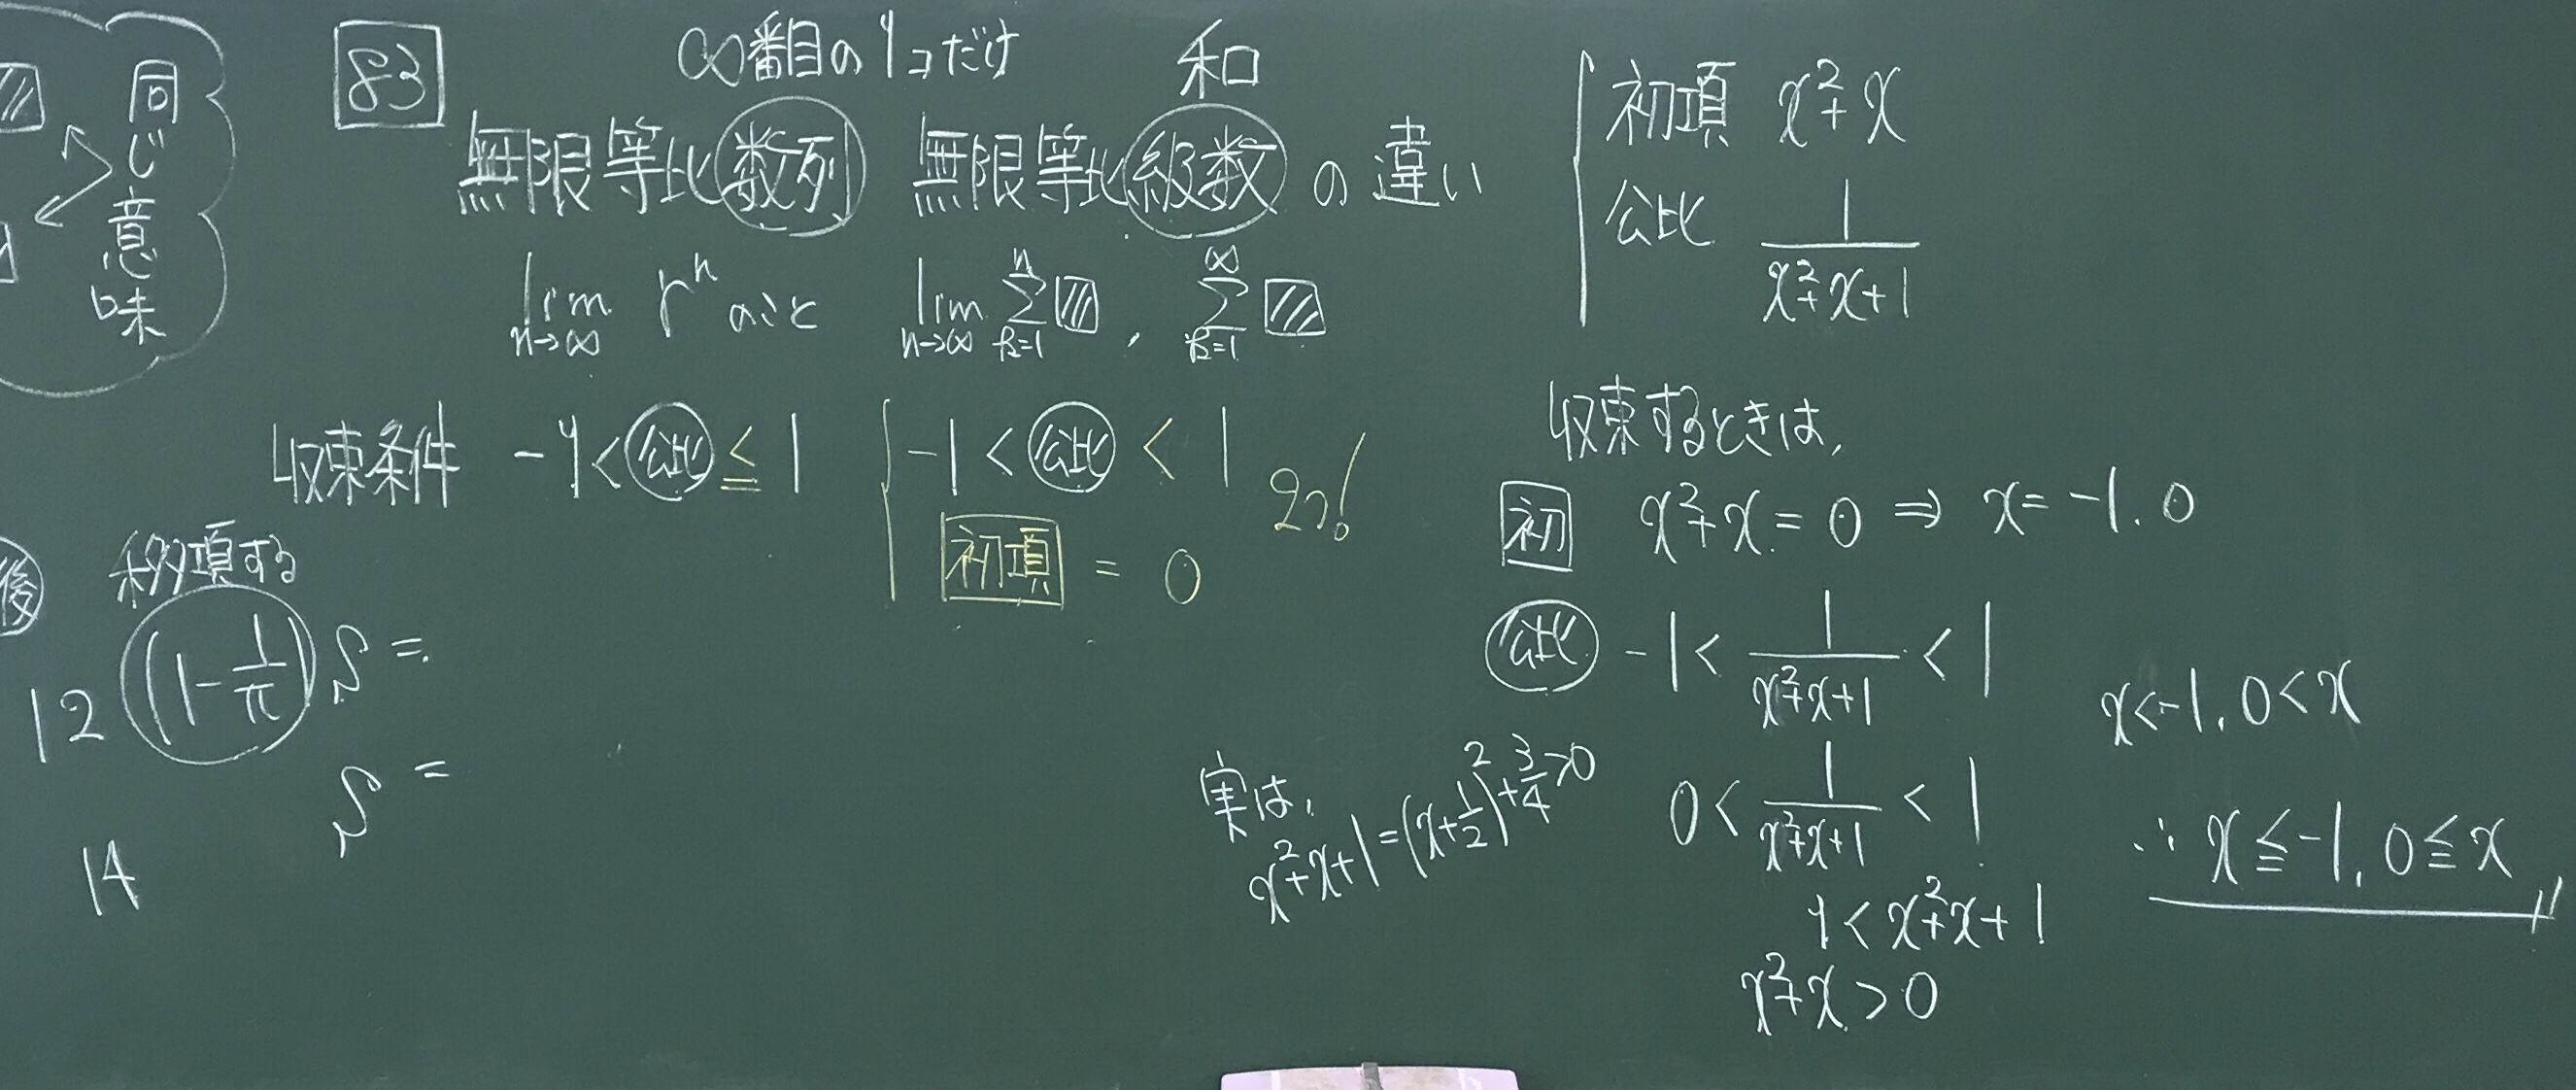 同じ意味
83
∞番目の1コだけ 和
無限等比数列 無限等比級数の違い
lim n→∞ r^n のこと lim n→∞ Σ k=1 n , Σ k=1 ∞
収束条件 -1<公比≦1 -1<公比<1
初項=0
後 移項する
12 (1-1/π)S=
S=
14
初項 x²+x
公比 1/(x²+x+1)
収束するときは,
初 x²+x=0 ⇒ x=-1, 0
公比 -1<1/(x²+x+1)<1
実は,
x²+x+1=(x+1/2)²+3/4>0
0<1/(x²+x+1)<1
1<x²+x+1
x²+x>0
x<-1, 0<x
∴ x≦-1, 0≦x